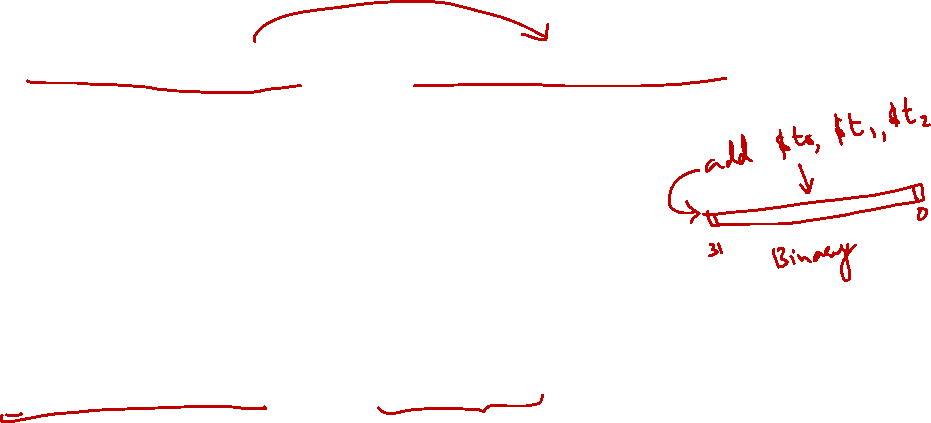 add $t0, $t1, $t2
31 0
Binary